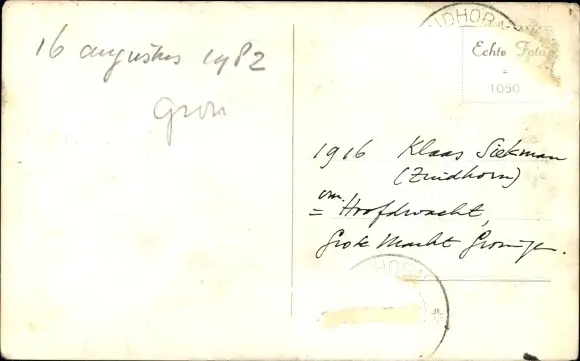 16 augustus 1982
Gron
UIDHOR
Echte Foto
=
1050
1916 Klaas Siekman
(Zuidhorn)
vm.
= Hoofdwacht,
Grote Markt Groningen.